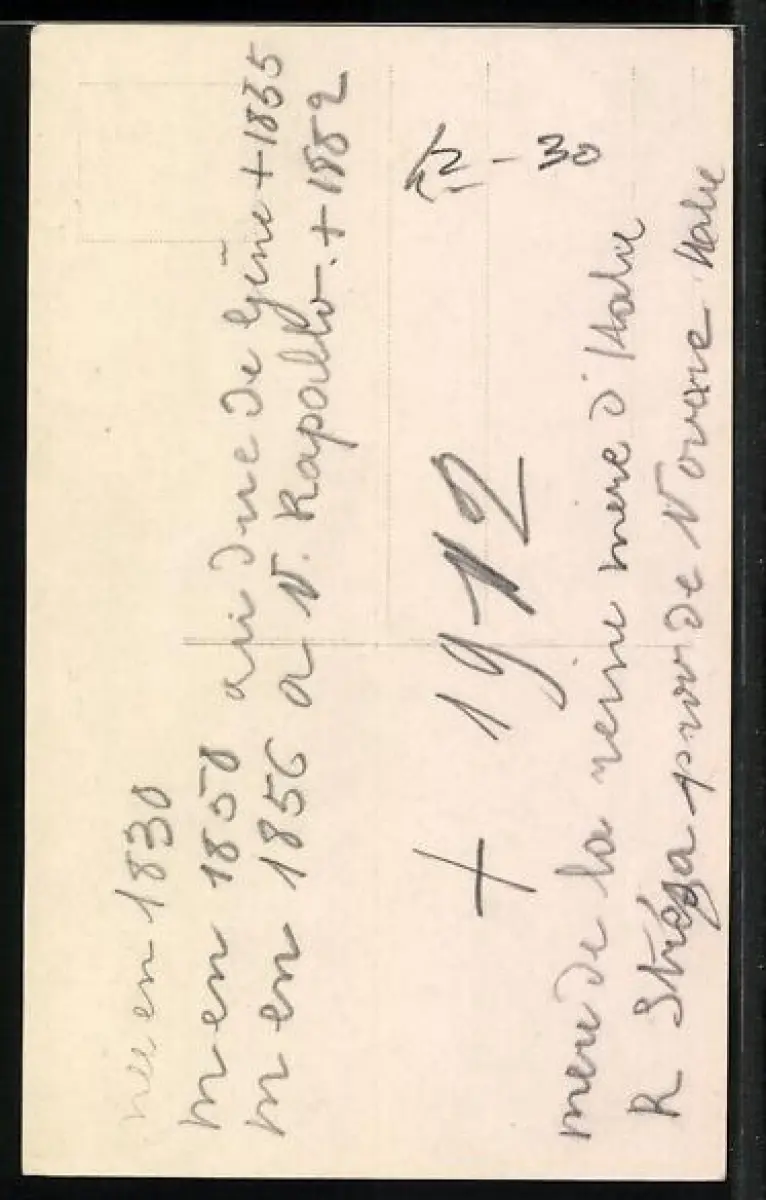 née en 1830
m en 1850 au duc de Gêne + 1855
m en 1856 a N. Rapallo. + 1882
12 - 30
+ 1912
mere de la reine mere d'Italie
R Stréza prov de Novare Italie